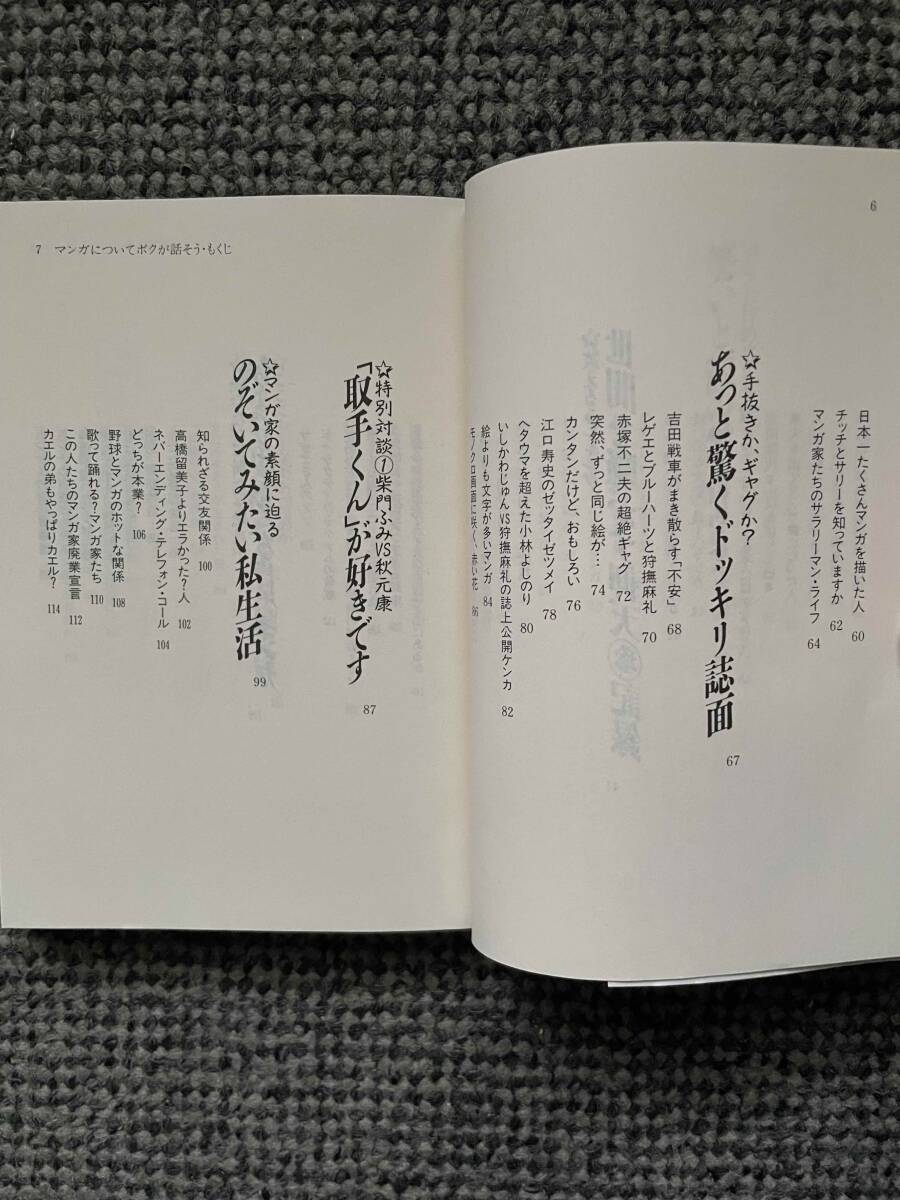 6
日本一たくさんマンガを描いた人 60
チッチとサリーを知っていますか 62
マンガ家たちのサラリーマン・ライフ 64
☆手抜きか、ギャグか?
あっと驚くドッキリ誌面 67
吉田戦車がまき散らす「不安」 68
レゲエとブルーハーツと狩撫麻礼 70
赤塚不二夫の超絶ギャグ 72
突然、ずっと同じ絵が… 74
カンタンだけど、おもしろい 76
江口寿史のゼッタイゼツメイ 78
ヘタウマを超えた小林よしのり 80
いしかわじゅんVS狩撫麻礼の誌上公開ケンカ 82
絵よりも文字が多いマンガ 84
モノクロ画面に咲く、赤い花 86
7 マンガについてボクが話そう・もくじ
☆特別対談①柴門ふみVS秋元康
「取手くん」が好きです 87
☆マンガ家の素顔に迫る
のぞいてみたい私生活 99
知られざる交友関係 100
高橋留美子よりエラかった?人 102
ネバーエンディング・テレフォン・コール 104
どっちが本業? 106
野球とマンガのホットな関係 108
歌って踊れる?マンガ家たち 110
この人たちのマンガ家廃業宣言 112
カエルの弟もやっぱりカエル? 114